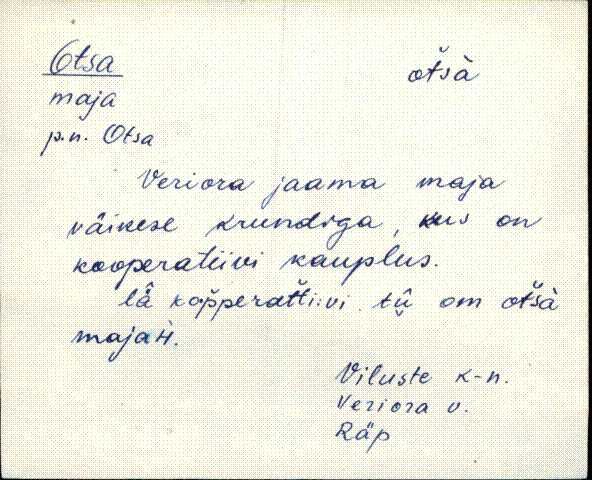 Otsa otsà
maja
p.n. Otsa
Veriora jaama maja
väikese krundiga, kus on
kooperatiivi kauplus.
lä kopperattiivi tü om otsà
majan.
Viluste k-n.
Veriora v.
Räp